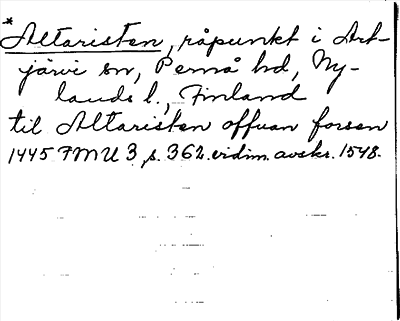 *
Altaristen, råpunkt i Art-
järvi sn, Pernå hd, Ny-
lands l., Finland
til Altaristen offuan forsen
1445 FMU 3, s. 362. vidim. avskr. 1548.